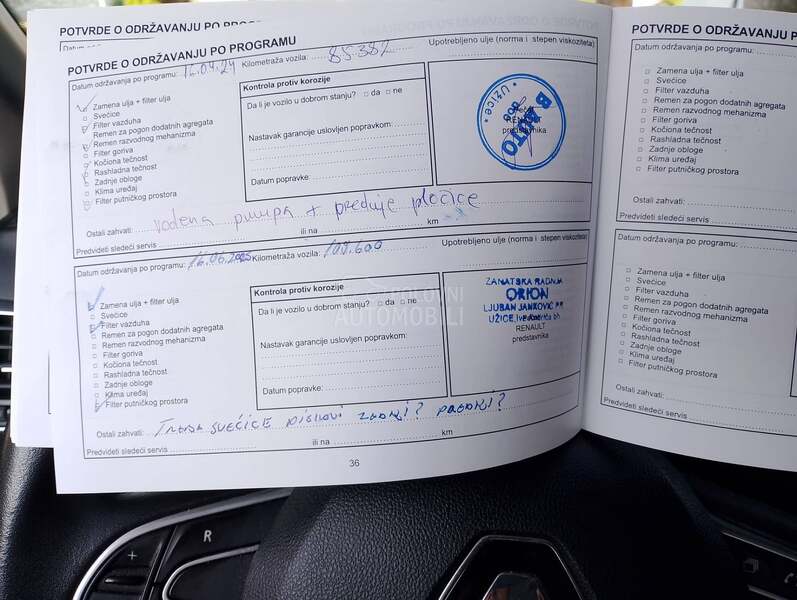 POTVRDE O ODRŽAVANJU PO
Datum
POTVRDE O ODRŽAVANJU PO PROGRAMU
Datum održavanja po programu: 16.04.24 Kilometraža vozila: 85382 Upotrebljeno ulje (norma i stepen viskoziteta)
Zamena ulja + filter ulja
Svećice
Filter vazduha
Remen za pogon dodatnih agregata
Remen razvodnog mehanizma
Filter goriva
Kočiona tečnost
Rashladna tečnost
Zadnje obloge
Klima uređaj
Filter putničkog prostora
Kontrola protiv korozije
Da li je vozilo u dobrom stanju? da ne
Nastavak garancije uslovljen popravkom:
Datum popravke:
UŽICE
predstavnika
Ostali zahvati: vodena pumpa + prednje pločice
Predvideti sledeći servis ili na km
Datum održavanja po programu: 16.06.2025 Kilometraža vozila: 109.600 Upotrebljeno ulje (norma i stepen viskoziteta)
Zamena ulja + filter ulja
Svećice
Filter vazduha
Remen za pogon dodatnih agregata
Remen razvodnog mehanizma
Filter goriva
Kočiona tečnost
Rashladna tečnost
Zadnje obloge
Klima uređaj
Filter putničkog prostora
Kontrola protiv korozije
Da li je vozilo u dobrom stanju? da ne
Nastavak garancije uslovljen popravkom:
Datum popravke:
ZANATSKA RADNJA
ORION
LJUBAN JANKOVIĆ PR
UŽICE, Ive Andrića bb
RENAULT
predstavnika
Ostali zahvati: SVEĆICE DISKOVI ZADNJI? PREDNJI?
Predvideti sledeći servis ili na km
36
POLOVNI
AUTOMOBILI
POTVRDE O ODRŽAVANJU P
Datum održavanja po programu:
Zamena ulja + filter ulja
Svećice
Filter vazduha
Remen za pogon dodatnih agregata
Remen razvodnog mehanizma
Filter goriva
Kočiona tečnost
Rashladna tečnost
Zadnje obloge
Klima uređaj
Filter putničkog prostora
Ostali zahvati:
Predvideti sledeći servis
Datum održavanja po programu:
Zamena ulja + filter ulja
Svećice
Filter vazduha
Remen za pogon dodatnih agregata
Remen razvodnog mehanizma
Filter goriva
Kočiona tečnost
Rashladna tečnost
Zadnje obloge
Klima uređaj
Filter putničkog prostora
Ostali zahvati:
Predvideti sledeći servis
R